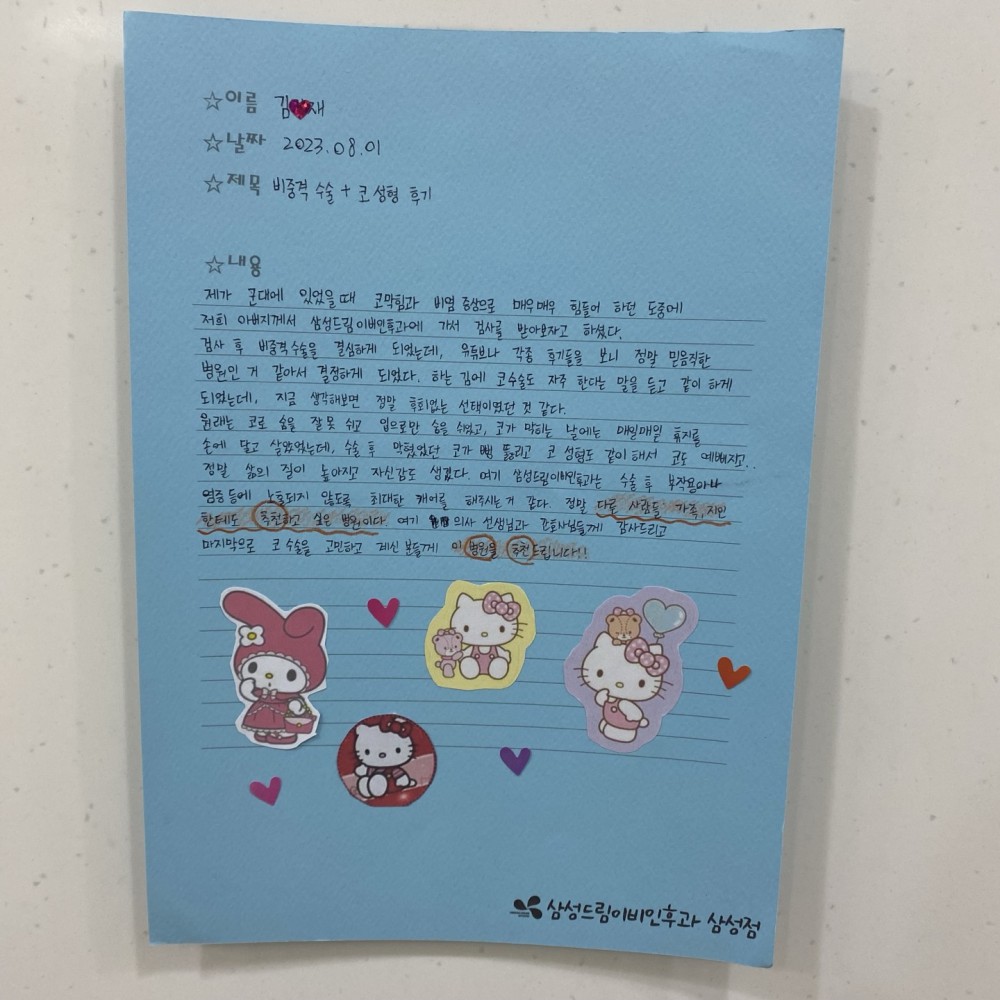 ☆이름 김 재
☆날짜 2023.08.01
☆제목 비중격 수술 + 코 성형 후기
☆내용
제가 군대에 있었을때 코막힘과 비염 증상으로 매우매우 힘들어 하던 도중에
저희 아버지께서 삼성드림이비인후과에 가서 검사를 받아보자고 하셨다.
검사 후 비중격수술을 결심하게 되었는데, 유튜브나 각종 후기들을 보니 정말 믿음직한
병원인 거 같아서 결정하게 되었다. 하는 김에 코수술도 자주 한다는 말을 듣고 같이 하게
되었는데, 지금 생각해보면 정말 후회없는 선택이였던 것 같다.
원래는 코로 숨을 잘 못 쉬고 입으로만 숨을 쉬었고, 코가 막히는 날에는 매일매일 휴지를
손에 달고 살았었는데, 수술 후 막혔었던 코가 뻥 뚫리고 코 성형도 같이 해서 코도 예뻐지고..
정말 삶의 질이 높아지고 자신감도 생겼다. 여기 삼성드림이비인후과는 수술 후 부작용이나
염증 등에 노출되지 않도록 최대한 케어를 해주시는 거 같다. 정말 다른 사람들 가족, 지인
한테도 추천하고 싶은 병원이다. 여기 의사 선생님과 간호사님들께 감사드리고
마지막으로 코 수술을 고민하고 계신 분들께 이 병원을 추천드립니다!!
삼성드림이비인후과 삼성점